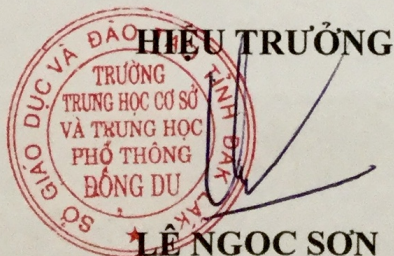 HIỆU TRƯỞNG
SỞ GIÁO DỤC VÀ ĐÀO TẠO TỈNH ĐĂK LĂK
TRƯỜNG
TRUNG HỌC CƠ SỞ
VÀ TRUNG HỌC
PHỔ THÔNG
ĐÔNG DU
LÊ NGỌC SƠN